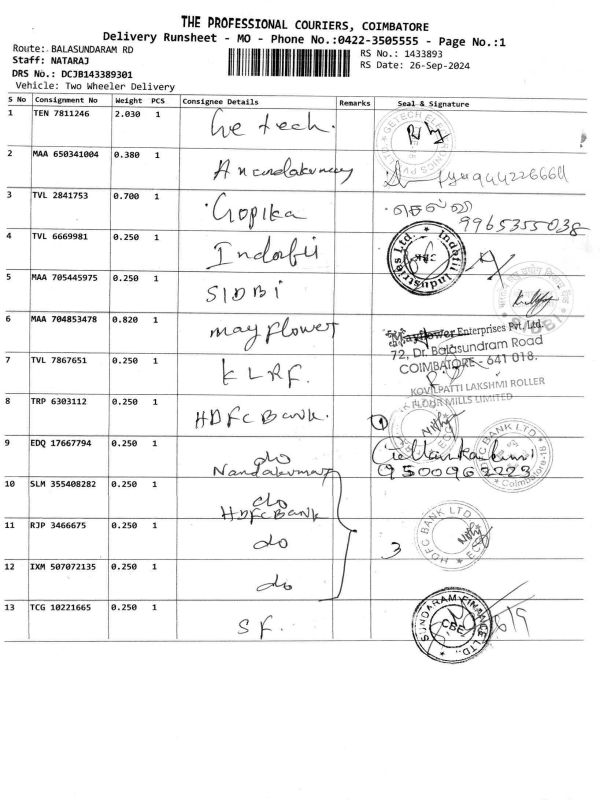 THE PROFESSIONAL COURIERS, COIMBATORE
Delivery Runsheet - MO - Phone No.:0422-3505555 - Page No.:1
Route: BALASUNDARAM RD
Staff: NATARAJ
DRS No.: DCJB143389301
Vehicle: Two Wheeler Delivery
RS No.: 1433893
RS Date: 26-Sep-2024
S No Consignment No Weight PCS Consignee Details Remarks Seal & Signature
1 TEN 7811246 2.030 1 Ge tech.
2 MAA 650341004 0.380 1 Anandakumar
3 TVL 2841753 0.700 1 Gopika செல்வி
9965355038
4 TVL 6669981 0.250 1 Indofil Indofil Industries Ltd.
5 MAA 705445975 0.250 1 SIDBI
6 MAA 704853478 0.820 1 mayflower Mayflower Enterprises Pvt. Ltd.
72, Dr. Balasundram Road
COIMBATORE - 641 018.
7 TVL 7867651 0.250 1 KLRF. KOVILPATTI LAKSHMI ROLLER
FLOUR MILLS LIMITED
8 TRP 6303112 0.250 1 HDFC Bank. 1
9 EDQ 17667794 0.250 1 do HDFC BANK LTD
Nandakumar 9500962223
10 SLM 355408282 0.250 1 do
HDFC Bank HDFC BANK LTD
11 RJP 3466675 0.250 1 do 3
12 IXM 507072135 0.250 1 do
13 TCG 10221665 0.250 1 SF. SUNDARAM FINANCE LTD. CBE